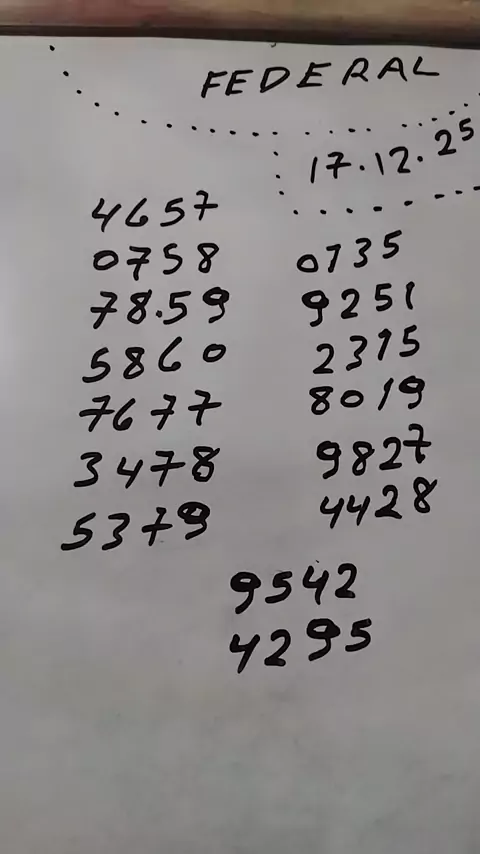 FEDERAL
17.12.25
4657
0758
78.59
5860
7677
3478
5379
0135
9251
2315
8019
9827
4428
9542
4295